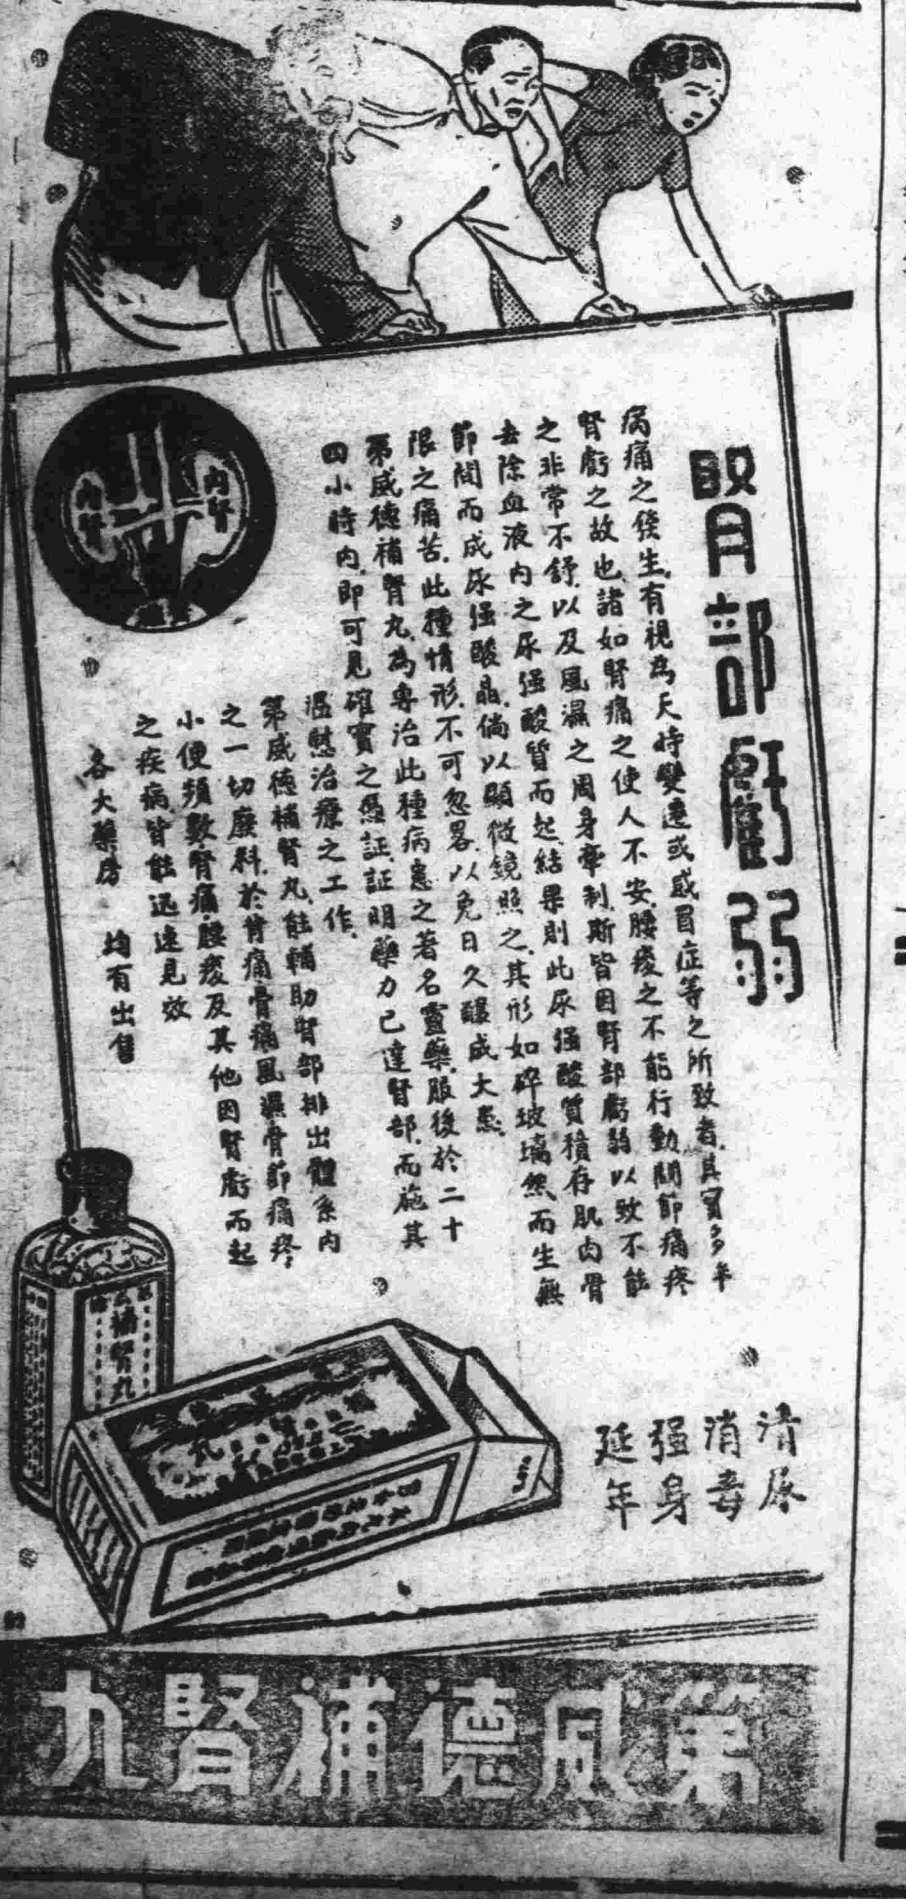 腎部虧弱
病痛之發生,有視為天時變遷或感冒症等之所致者,其實多年
腎虧之故也,諸如腎痛之使人不安,腰痠之不能行動,關節痛疼
之非常不舒,以及風濕之周身牽制,斯皆因腎部虧弱以致不能
去除血液內之尿强酸質而起,結果則此尿强酸質積存肌肉骨
節間而成尿强酸晶,倘以顯微鏡照之,其形如碎玻璃然,而生無
限之痛苦,此種情形,不可忽畧,以免日久釀成大患,
第威德補腎丸,為專治此種病患之著名靈藥,服後於二十
四小時內,即可見確實之憑証,証明藥力已達腎部,而施其
溫慰治療之工作,
第威德補腎丸,能輔助腎部排出體系內
之一切廢料,於背痛骨痛風濕骨節痛疼
小便頻數,腎痛,腰痠及其他因腎虧而起
之疾病,皆能迅速見效
各大藥房 均有出售
內腎
內腎
清尿
消毒
强身
延年
補腎丸
第威德補腎丸